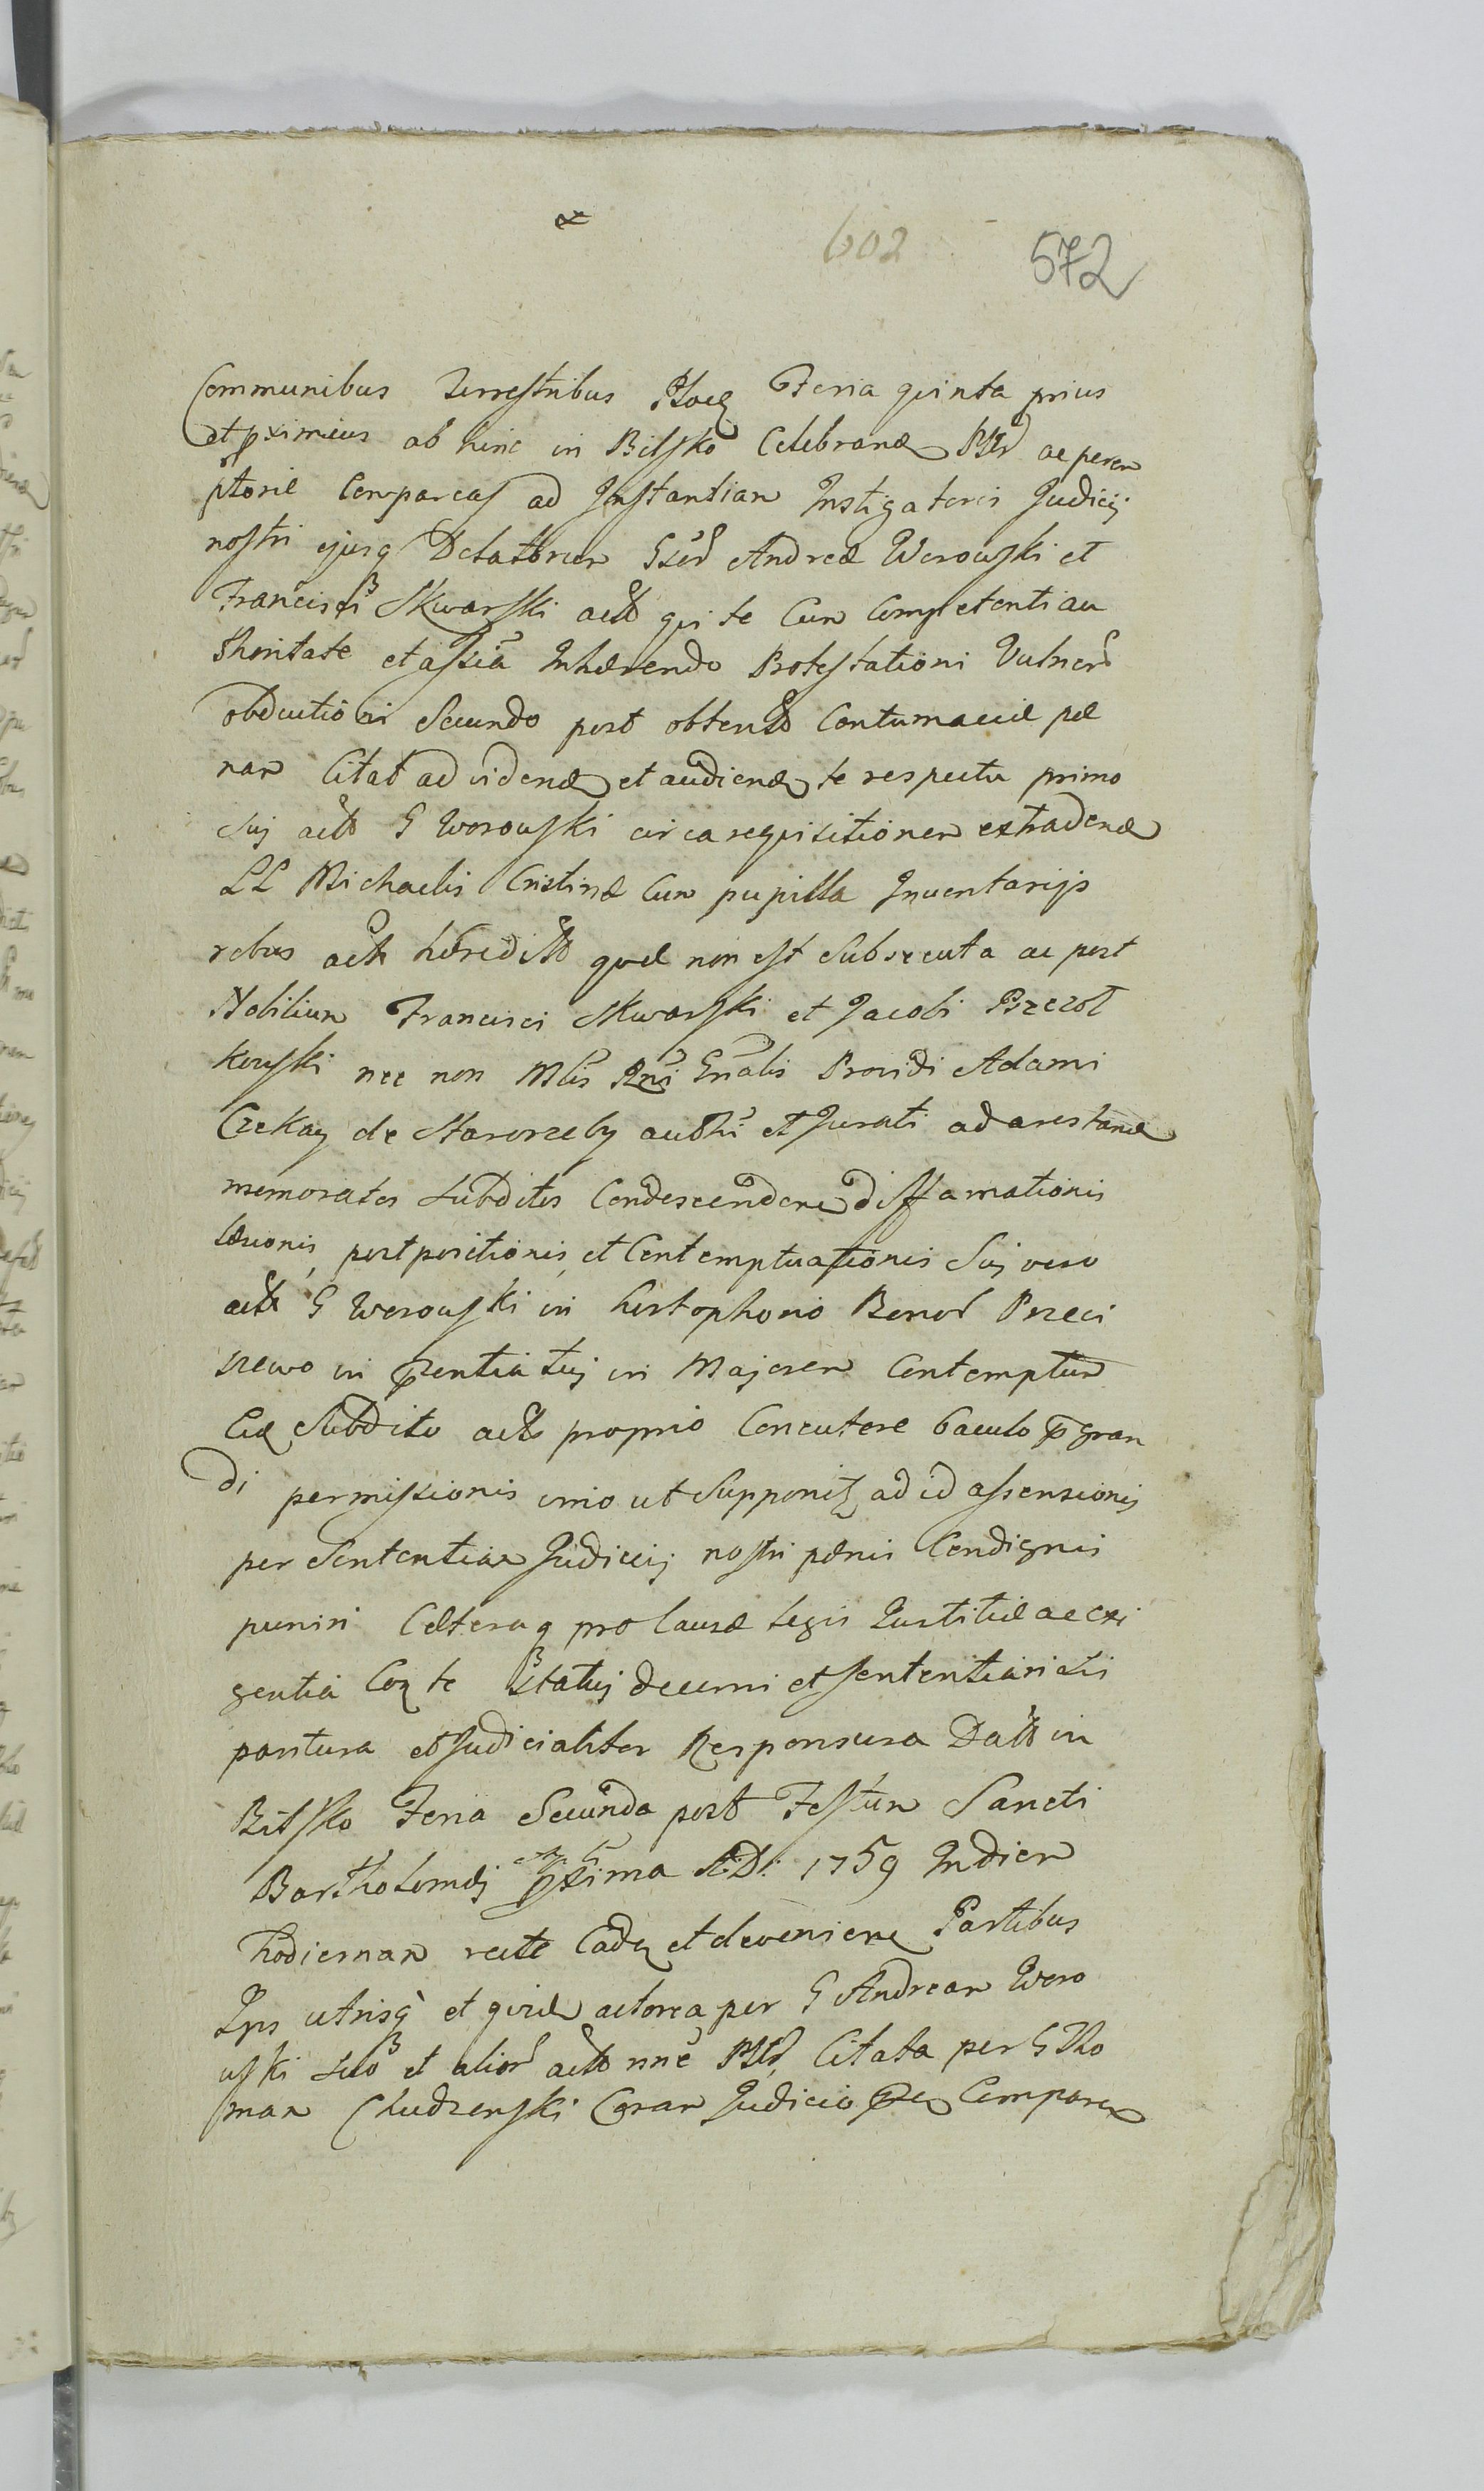 602 572
Communibus Terrestribus Ploceñ Feria quinta prius
et pximius ab hinc in Bilsko Celebrand ac peren
ptorie Compareas ad Instantiam Instigatoris Judicij
nostri ejusq Delatorum Andreæ Worowski et
Francisci Skwarski acto qui te Cum Competenti au
thoritate et assia Inhærendo Protestationi Vulner
obductionis Secundo post obtent Contumaciæ pæ
nam Citat ad videnđ et audienđ te respectu primo
sui acto G Worowski circa requisitionem extradenđ
LL Michaelis Cristinæ Cum pupilla Inventarijs
rebus acto heredit quæ non est Subsecuta ac post
Nobilium Francisci Skwarski et Jacobi Brzezot
kowski nec non Mlis Rni Gnalis Providi Adami
Czekay de Starorzeby authi et Jurati ad arestand
memoratos Subditos Condescendere diffamationis
læsionis, postpositionis, et Contemptuationis Sui vero
acto G Worowski in hortophorio Bonor Przeci
szewo in pæntia tuj in Majorem Contemptum
Subdito acto proprio Concutere baculo pgran
di permissionis imo ut Supponit ad id assensionis
per Sententiam Judicij nostri pænis Condignis
puniri Cæteraq pro Causæ legis Justitiæ ac exi
gentia te statuj decerni et sententiari
paritura et Judicialiter Responsura Datt in
Bilsko Feria Secunda post Festum Sancti
Bartholomæj pxima A:D: 1759 In diem
hodiernam recte Cadeñ et devenien Partibus
Ips utrisq et quidem actorea per G Andream Woro
wski suo et alior acto nne Citata per G Tho
mam Chudzenski Coram Judicio Comparen